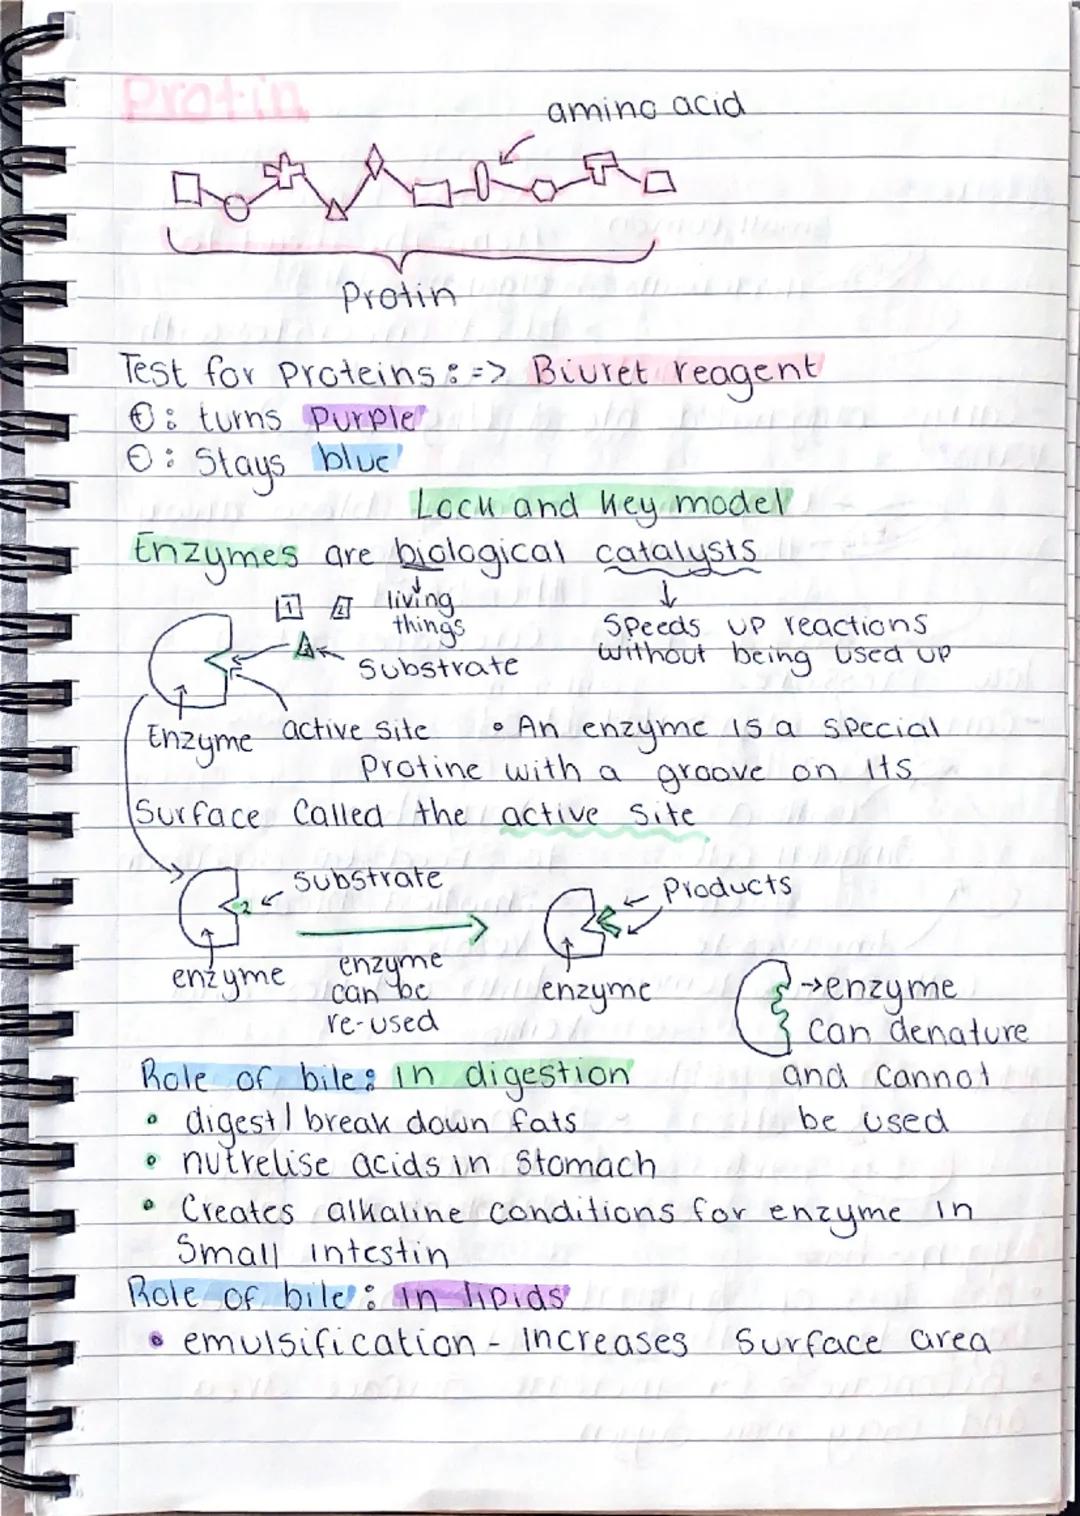 Protin
amino acid
Protin
Test for Proteins : => Biuret reagent
⊕ : turns Purple
⊖ : Stays blue
Lock and Key model
Enzymes are biological catalysts
1 2 living things
3 Substrate
Speeds up reactions
without being used up
Enzyme active site • An enzyme is a special
Protine with a groove on its
Surface Called the active Site
Substrate
2
Products
enzyme
enzyme
can be
re-used
enzyme
→enzyme
can denature
and cannot
be used
Role of bile: in digestion
• digest/break down fats
• nutrelise acids in Stomach
• Creates alkaline conditions for enzyme in
Small intestin
Role of bile : in lipids
• emulsification - increases Surface area